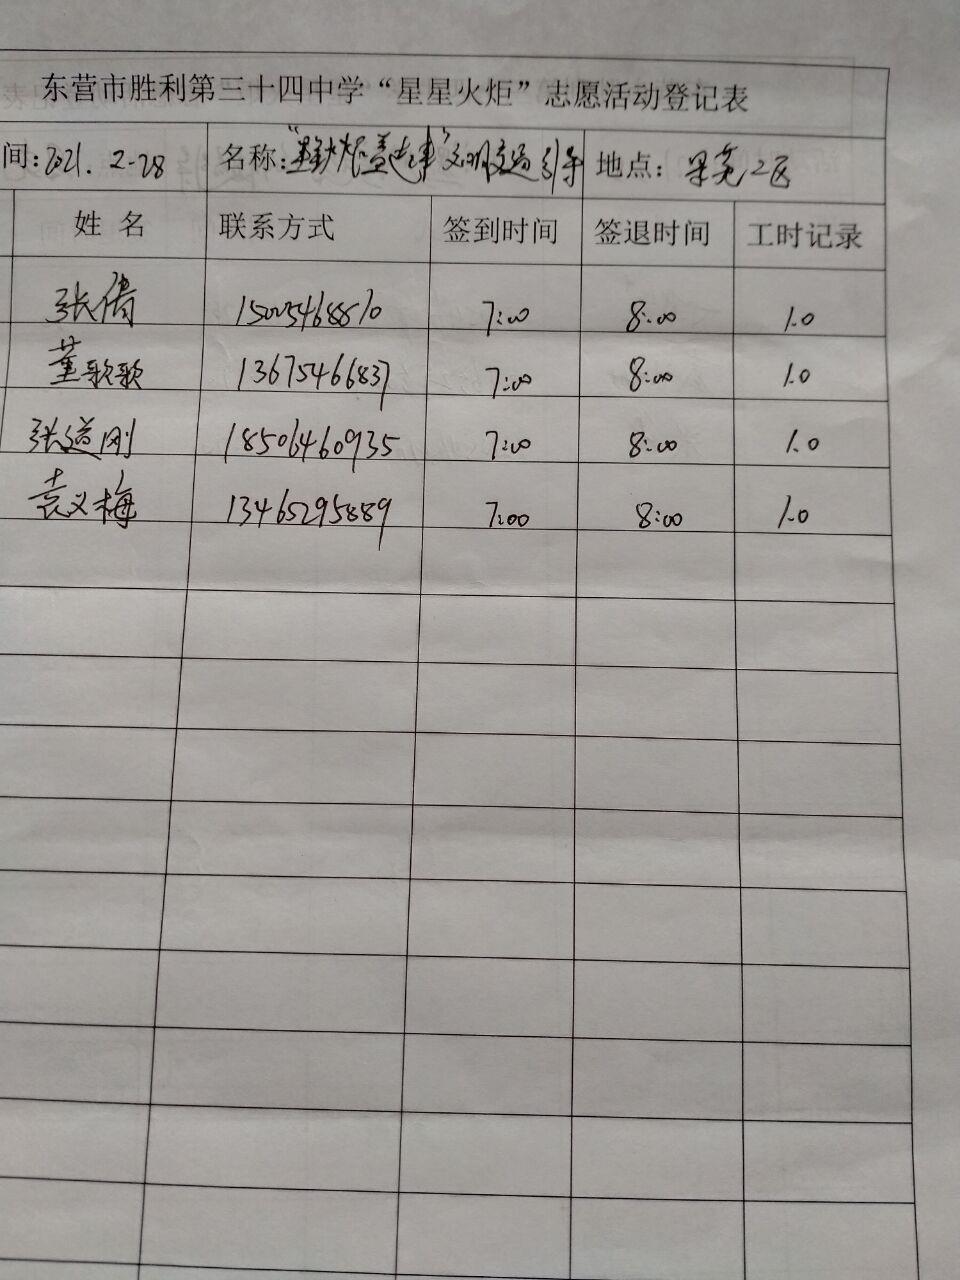 东营市胜利第三十四中学“星星火炬”志愿活动登记表
间:2021.2-28 名称:“ ”文明交通引导 地点: 二区
姓 名 联系方式 签到时间 签退时间 工时记录
张倩 15005468810 7:00 8:00 1.0
董歌歌 13675466837 7:00 8:00 1.0
张道刚 18506460935 7:00 8:00 1.0
袁义梅 13465295889 7:00 8:00 1.0